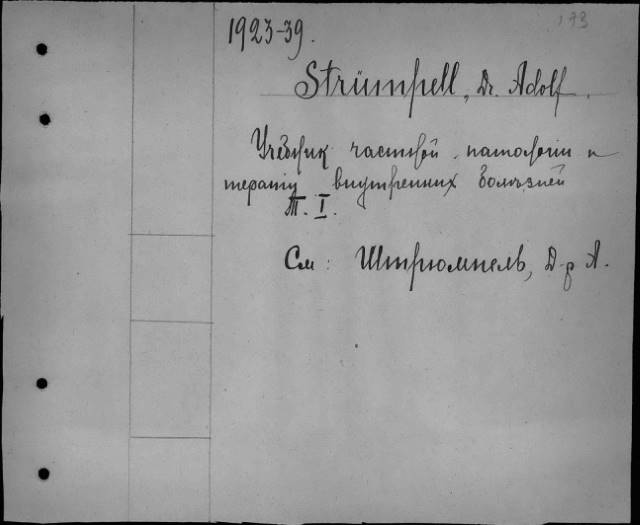 173
1923-39.
Strümpell, Dr. Adolf.
Учебник частной патологіи и
терапіи внутренних болѣзней
Т. I.
См: Штрюмпель, Д-р А.